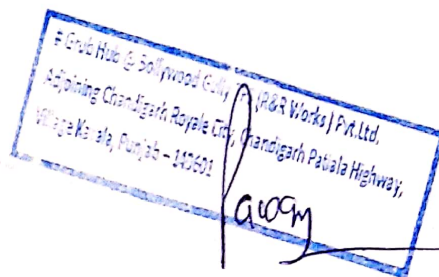 # Grub Hub @ Bollywood Gully (R&R Works) Pvt.Ltd,
Adjoining Chandigarh Royale City, Chandigarh Patiala Highway,
Village Karala, Punjab – 140601